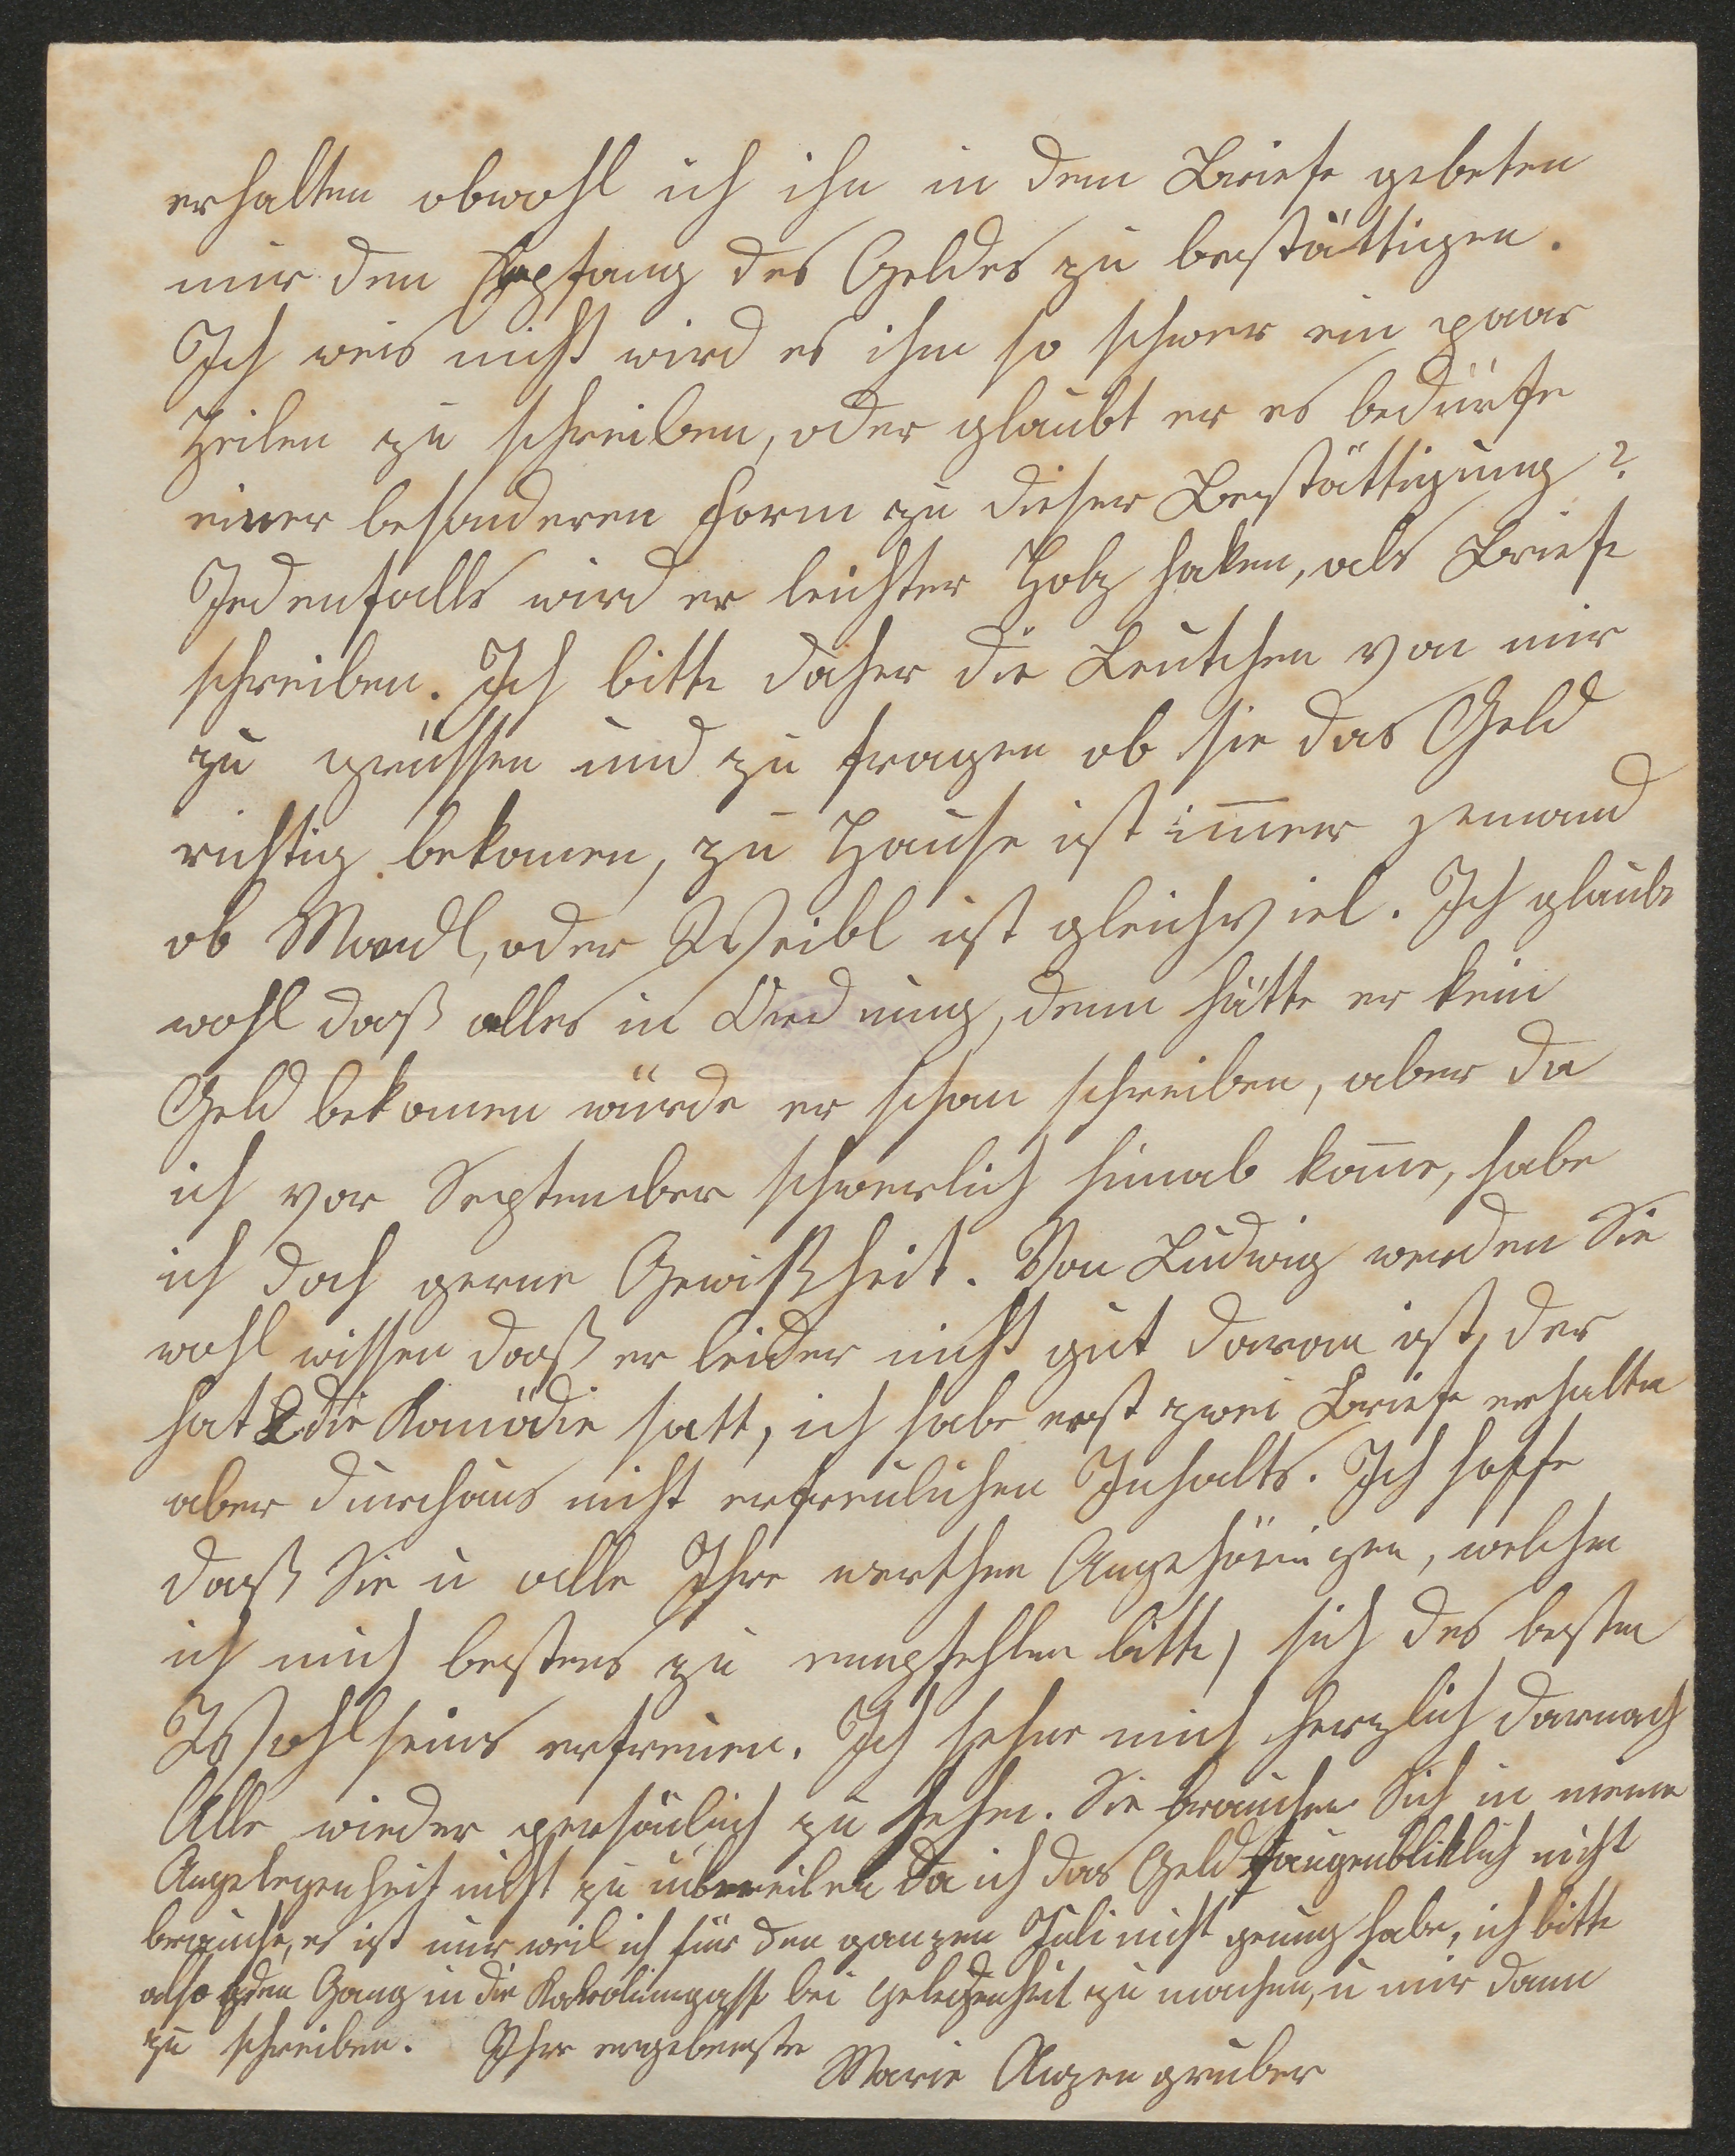 erhalten obwohl ich ihn in dem Briefe gebeten
mir den Empfang des Geldes zu bestättigen.
Ich weis nicht wird es ihm so schwer ein paar
Zeilen zu schreiben, oder glaubt er es bedürfe
einer besonderen Form zu dieser Bestättigung?
Jedenfalls wird er leichter Holz haken, als Briefe
schreiben. Ich bitte daher die Leutchen von mir
zu grüssen und zu fragen ob sie das Geld
richtig bekomen, zu Hause ist im̅er jemand
ob Mandl, oder Weibl ist gleichviel. Ich glaube
wohl daß alles in Ordnung, denn hätte er kein
Geld bekomen würde er schon schreiben, aber da
ich vor September schwerlich hinab kom̅e, habe
ich doch gerne Gewißheit. Von Ludwig werden Sie
wohl wissen daß er leider nicht gut daran ist, der
hat die Komödie satt, ich habe erst zwei Briefe erhalten
aber durchaus nicht erfreulichen Inhalts. Ich hoffe
daß Sie u alle Ihre werthen Angehörigen, welchen
ich mich bestens zu empfehlen bitte, sich des besten
Wohlseins erfreuen. Ich sehne mich herzlich darnach
Alle wieder persönlich zu sehen. Sie brauchen Sich in meiner
Angelegenheit nicht zu übereilen da ich das Geld augenbliklich nicht
brauche, es ist nur weil ich für den ganzen Juli nicht genug habe, ich bitte
also den Gang in die Karolinengasse bei Gelegenheit zu machen, u mir dann
zu schreiben. Ihre ergebenste
Marie Anzengruber